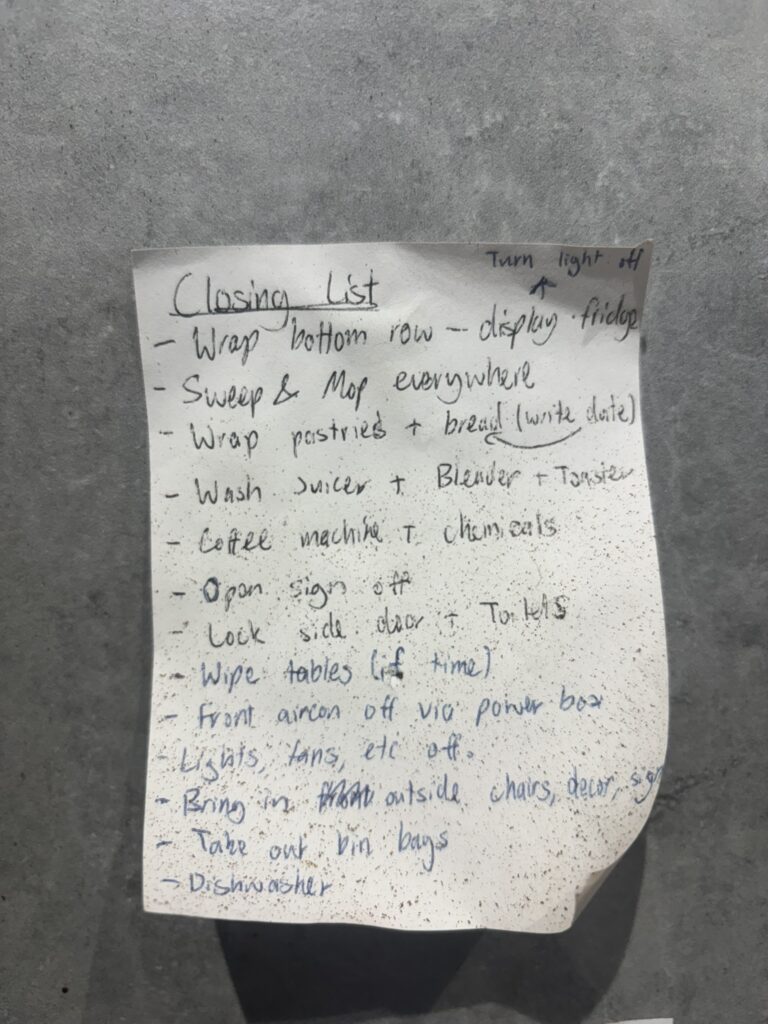 Turn light off
Closing List
- Wrap bottom row - display fridge
- Sweep & Mop everywhere
- Wrap pastries + bread (write date)
- Wash Juicer + Blender + Toaster
- Coffee machine + chemicals
- Open sign off
- Lock side door + Toilets
- Wipe tables (if time)
- Front aircon off via power box
- Lights, fans, etc off.
- Bring in outside chairs, decor, sign
- Take out bin bags
- Dishwasher